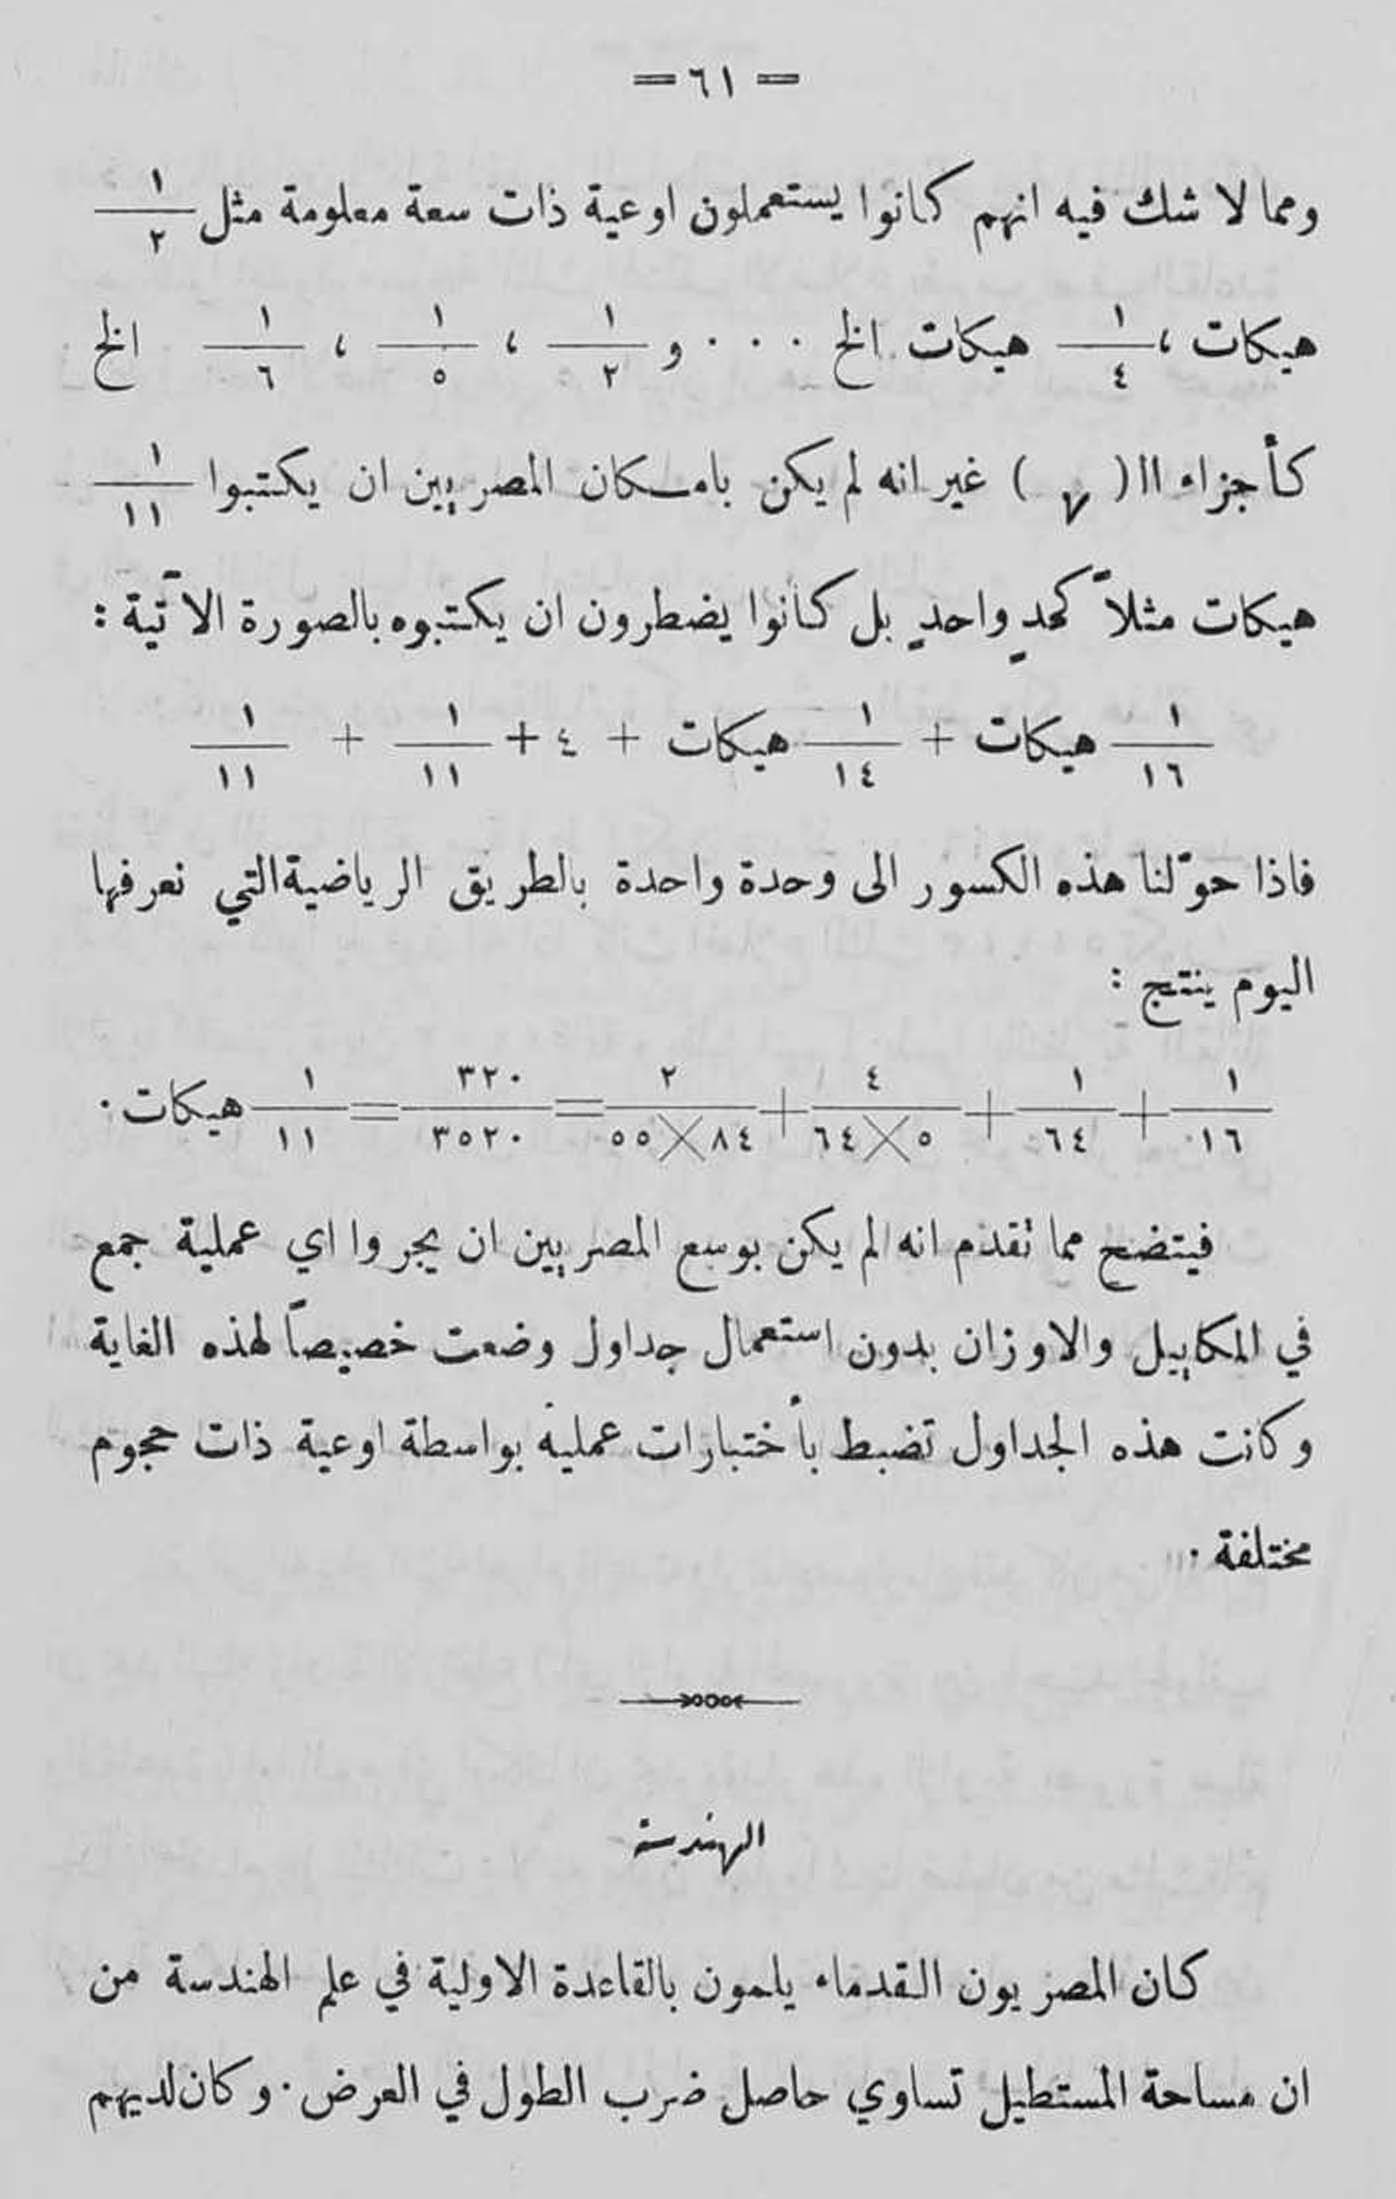 = ٦١ =
ومما لا شك فيه انهم كانوا يستعملون اوعية ذات سعة معلومة مثل ١/٢
هيكات ، ١/٤ هيكات الخ ٠ ٠ ٠ و ١/٢ ، ١/٥ ، ١/٦ الخ
كأجزاء ال ( ) غير انه لم يكن بامكان المصريين ان يكتبوا ١/١١
هيكات مثلاً كحدٍ واحدٍ بل كانوا يضطرون ان يكتبوه بالصورة الآتية :
١/١٦ هيكات + ١/١٤ هيكات + ٤ + ١/١١ + ١/١١
فاذا حوّلنا هذه الكسور الى وحدة واحدة بالطريق الرياضية التي نعرفها
اليوم ينتج :
١/١٦ + ١/٦٤ + ٤/٥×٦٤ + ٢/٨٤×٥٥ = ٣٢٠/٣٥٢٠ = ١/١١ هيكات ٠
فيتضح مما تقدم انه لم يكن بوسع المصريين ان يجروا اي عملية جمع
في المكاييل والاوزان بدون استعمال جداول وضعت خصيصاً لهذه الغاية
وكانت هذه الجداول تضبط بأختبارات عملية بواسطة اوعية ذات حجوم
مختلفة ٠
الهندسة
كان المصريون القدماء يلمون بالقاعدة الاولية في علم الهندسة من
ان مساحة المستطيل تساوي حاصل ضرب الطول في العرض ٠ وكان لديهم